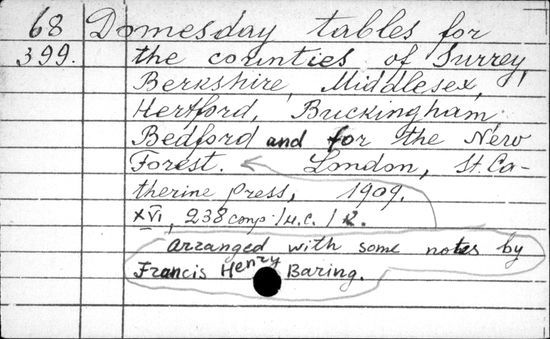 68 Domesday tables for
399. the counties of Surrey,
Berkshire, Middlesex,
Hertford, Buckingham,
Bedford and for the New
Forest. London, St. Ca-
therine press, 1909.
XVI, 238 стр.
Arranged with some notes by
Francis Henry Baring.